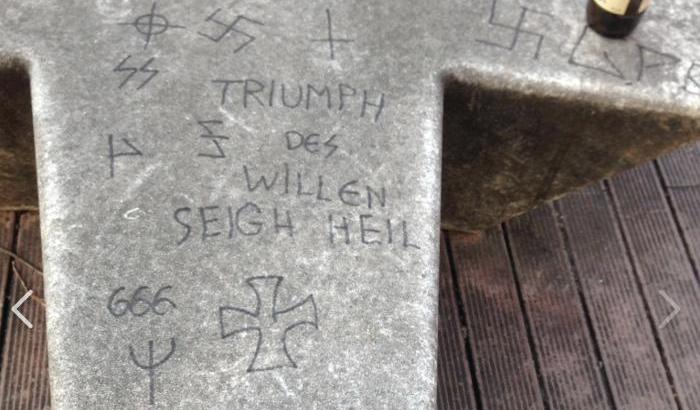 TRIUMPH
DES
WILLEN
SEIGH HEIL
666